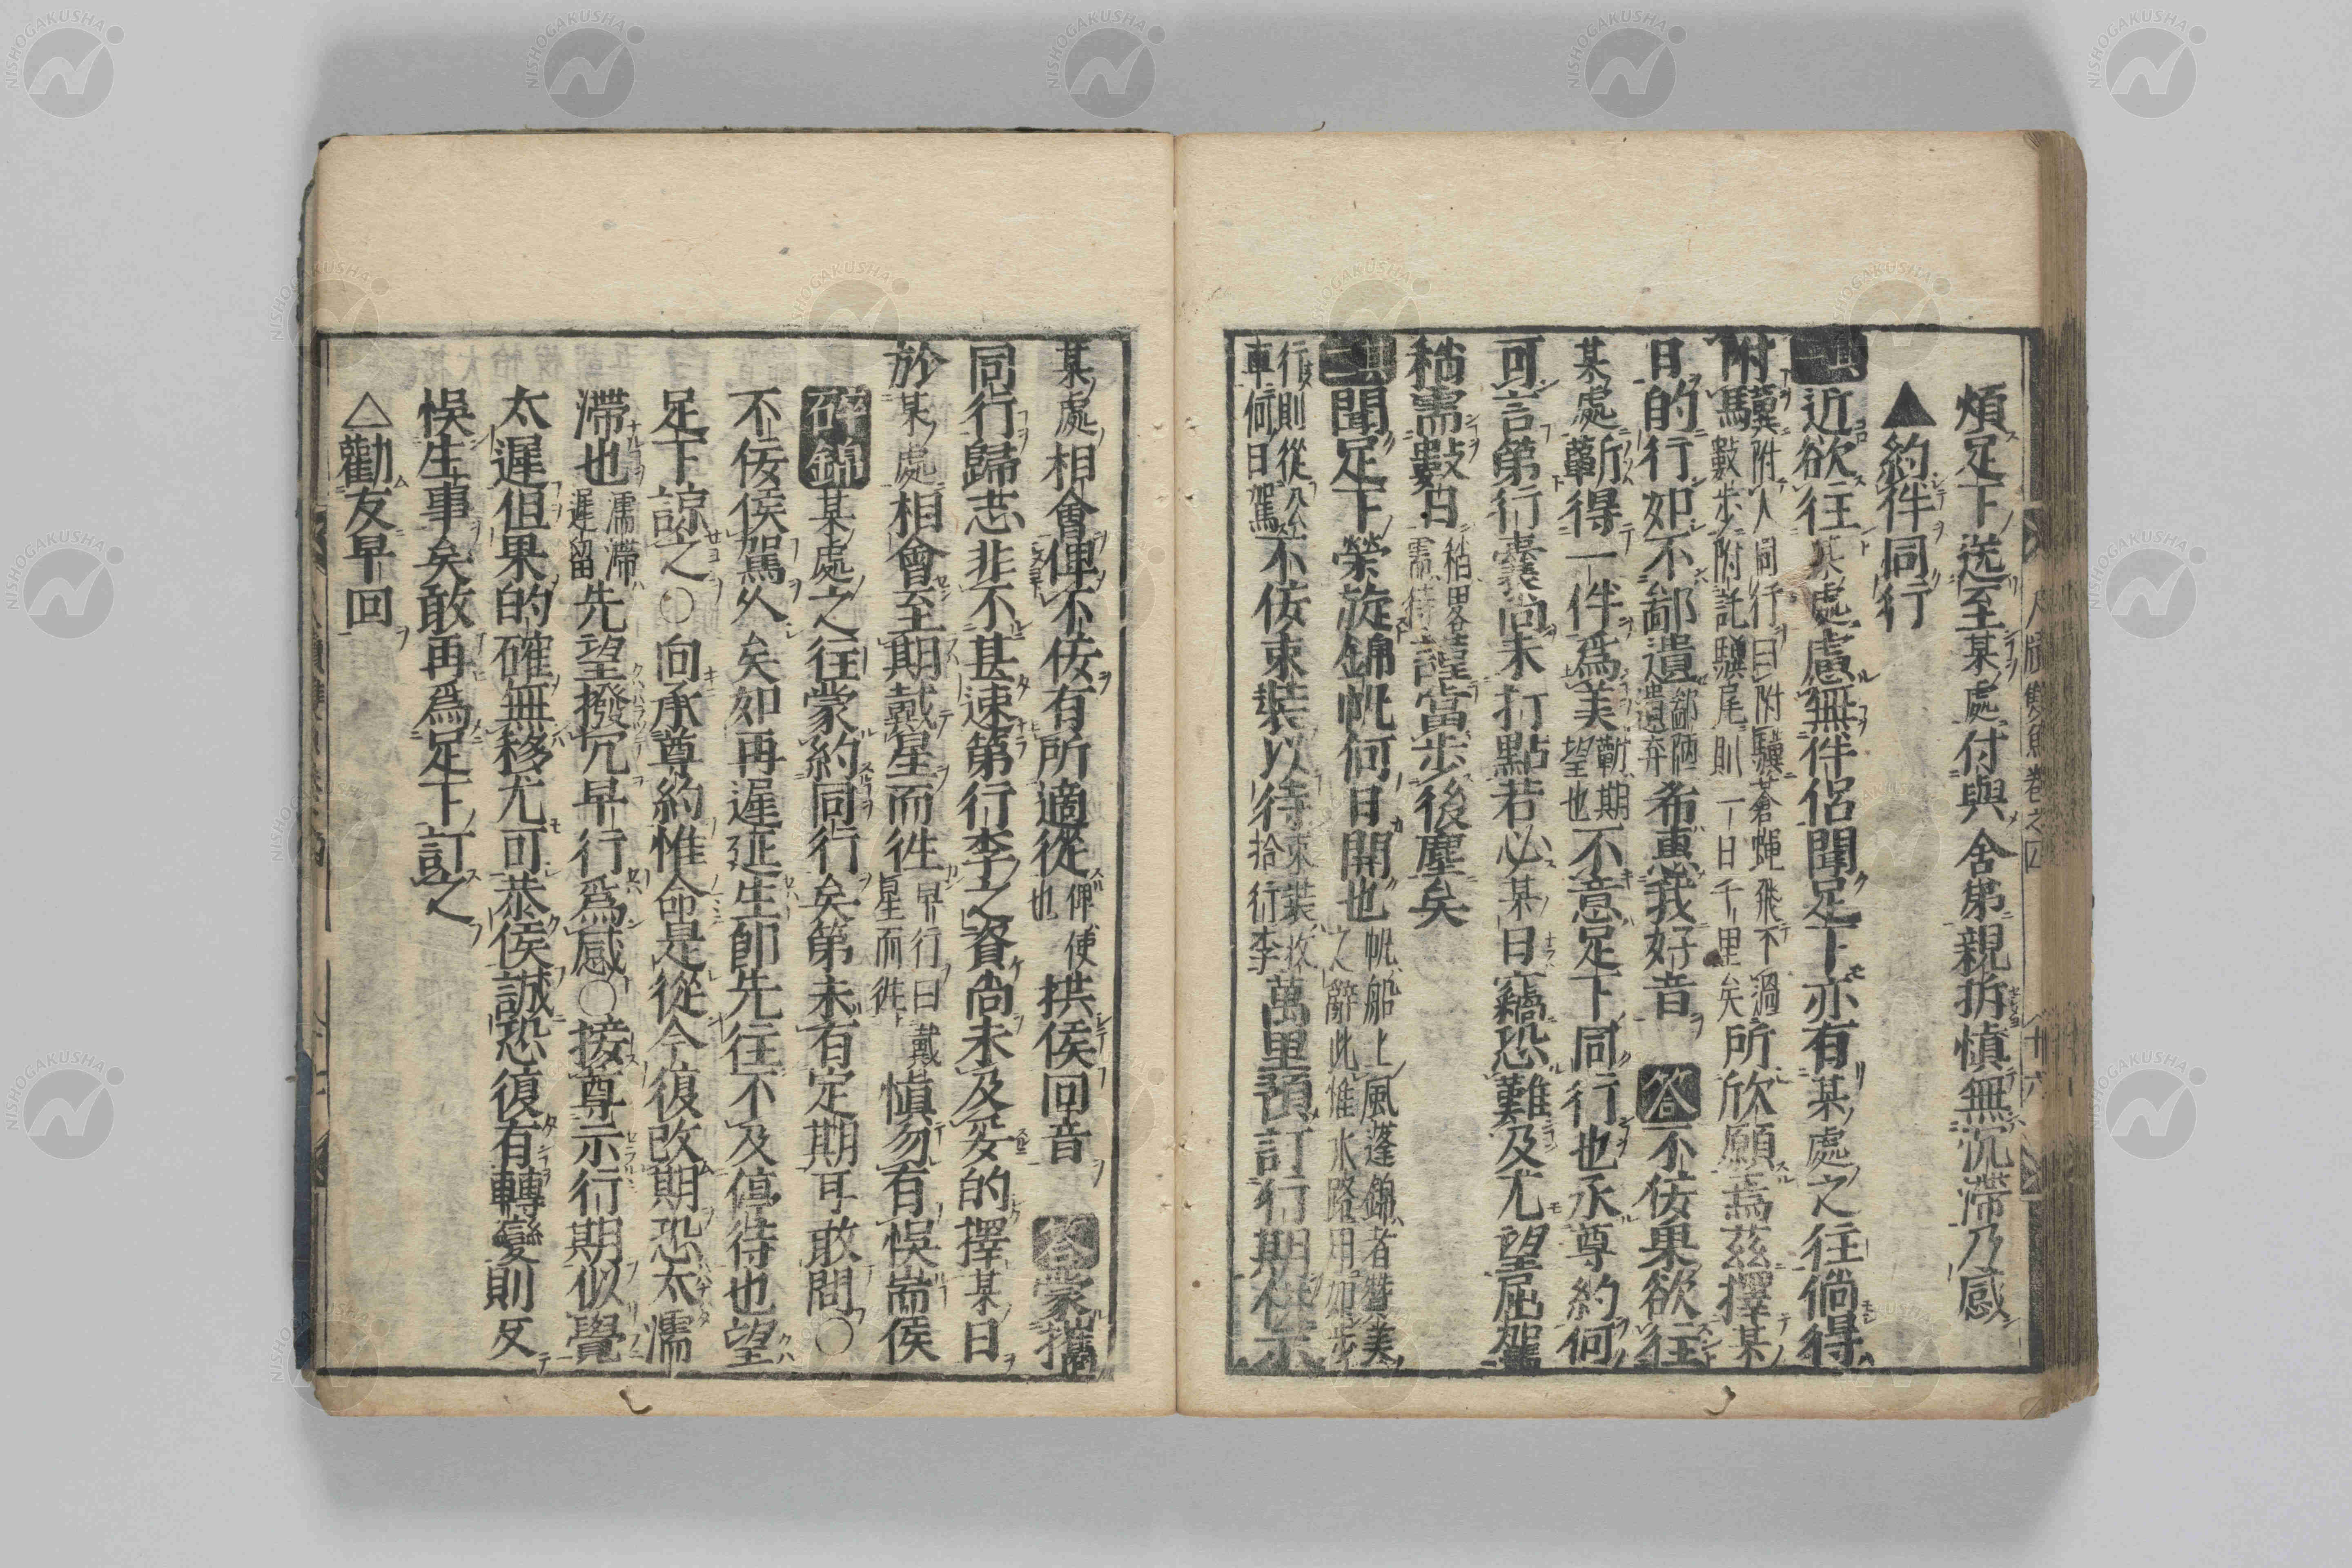 煩足下送至某處付與舍弟親拆慎無沉滯乃感
▲約伴同行
近欲往某處慮無伴侶聞足下亦有某處之往倘得
附驥附人同行曰附驥蒼蝿飛不過數步附託驥尾則一日千里矣所欣願焉茲擇某
日的行如不鄙遺鄙陋遺弃希惠我好音 答不侫果欲往
某處蘄得一件爲美蘄期望也不意足下同行也承尊約何
可言第行囊尚未打點若必某日竊恐難及尤望屈駕
稍需數日稍畧需待謹當步後塵矣
聞足下榮旋錦帆何日開也帆船上風蓬錦者贊美之辭此惟水路用如步
行則從公車何日駕不侫束裝以待束裝收拾行李萬里預訂行期仕示
某處相會俾不侫有所適從俾使也拱侯回音 答蒙攜
同行歸志非不甚速第行李之資尚未及妥的擇某日
於某處相會至期戴星而徃早行曰戴星而徃慎勿有悞耑侯
碎錦某處之往蒙約同行矣第未有定期耳敢問○
不侫侯駕久矣如再遲延生即先往不及停待也望
足下諒之○向承尊約惟命是從今復改期恐太濡
滯也濡滯遲留先望撥冗早行爲感○接尊示行期似覺
太遲但果的確無移尤可恭侯誠恐復有轉變則反
悞生事矣敢再爲足下訂之
△勸友早回